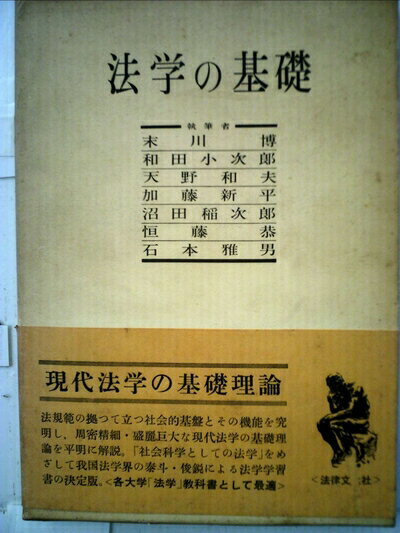 法学の基礎
執筆者
末川博
和田小次郎
天野和夫
加藤新平
沼田稲次郎
恒藤恭
石本雅男
現代法学の基礎理論
法規範の拠つて立つ社会的基盤とその機能を究
明し、周密精細・盛麗巨大な現代法学の基礎理
論を平明に解説。「社会科学としての法学」をめ
ざして我国法学界の泰斗・俊鋭による法学学習
書の決定版。<各大学「法学」教科書として最適>
<法律文 社>